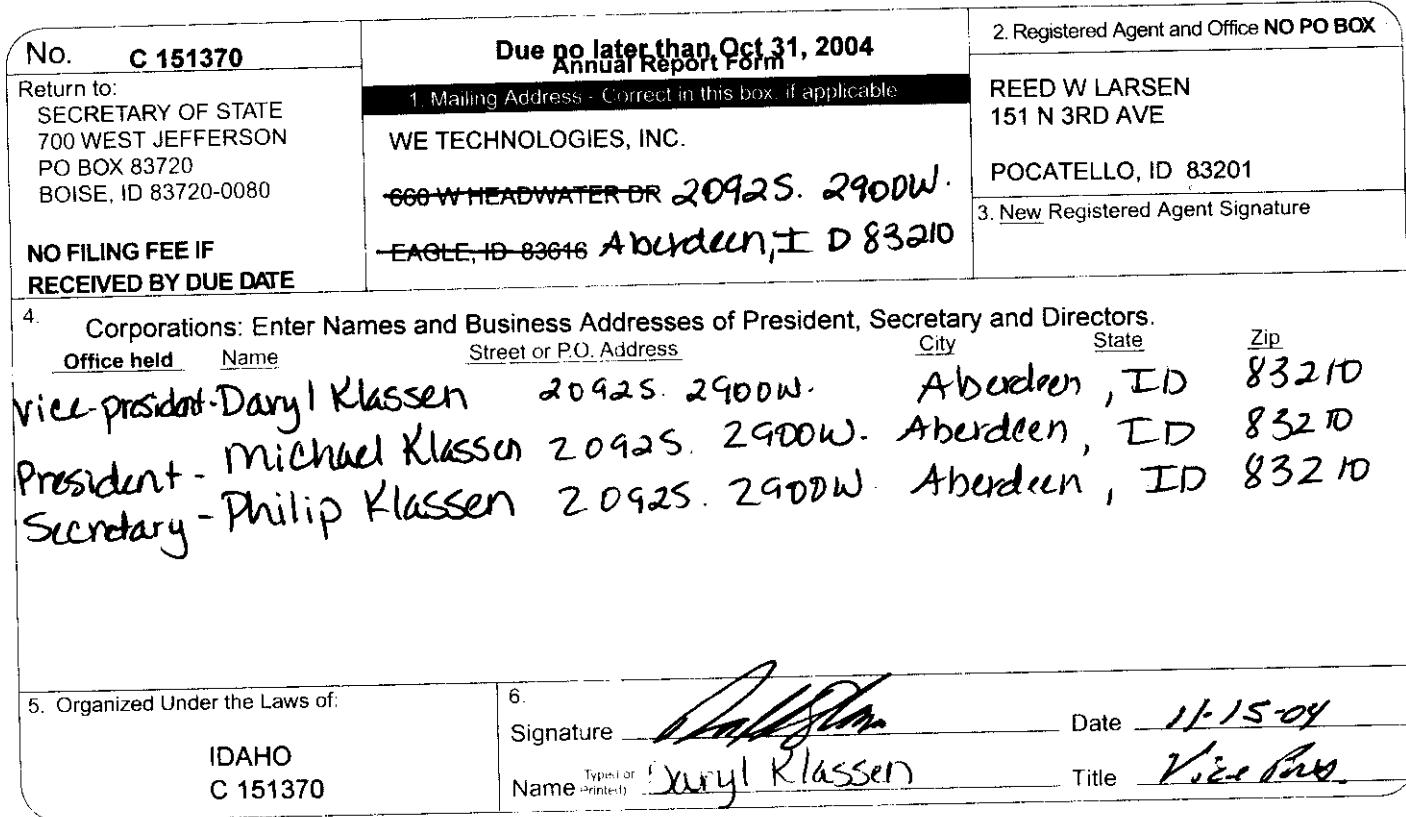 No. C 151370
Return to:
SECRETARY OF STATE
700 WEST JEFFERSON
PO BOX 83720
BOISE, ID 83720-0080
NO FILING FEE IF
RECEIVED BY DUE DATE
Due no later than Oct 31, 2004
Annual Report Form
1. Mailing Address - Correct in this box, if applicable
WE TECHNOLOGIES, INC.
660 W HEADWATER DR 2092 S. 2900 W.
EAGLE, ID 83616 Aberdeen, ID 83210
2. Registered Agent and Office NO PO BOX
REED W LARSEN
151 N 3RD AVE
POCATELLO, ID 83201
3. New Registered Agent Signature
4. Corporations: Enter Names and Business Addresses of President, Secretary and Directors.
Office held Name Street or P.O. Address City State Zip
Vice-president - Daryl Klassen 2092 S. 2900 W. Aberdeen, ID 83210
President - Michael Klassen 2092 S. 2900 W. Aberdeen, ID 83210
Secretary - Philip Klassen 2092 S. 2900 W. Aberdeen, ID 83210
5. Organized Under the Laws of:
IDAHO
C 151370
6.
Signature Date 11-15-04
Name (Typed or Printed) Daryl Klassen Title Vice Pres.